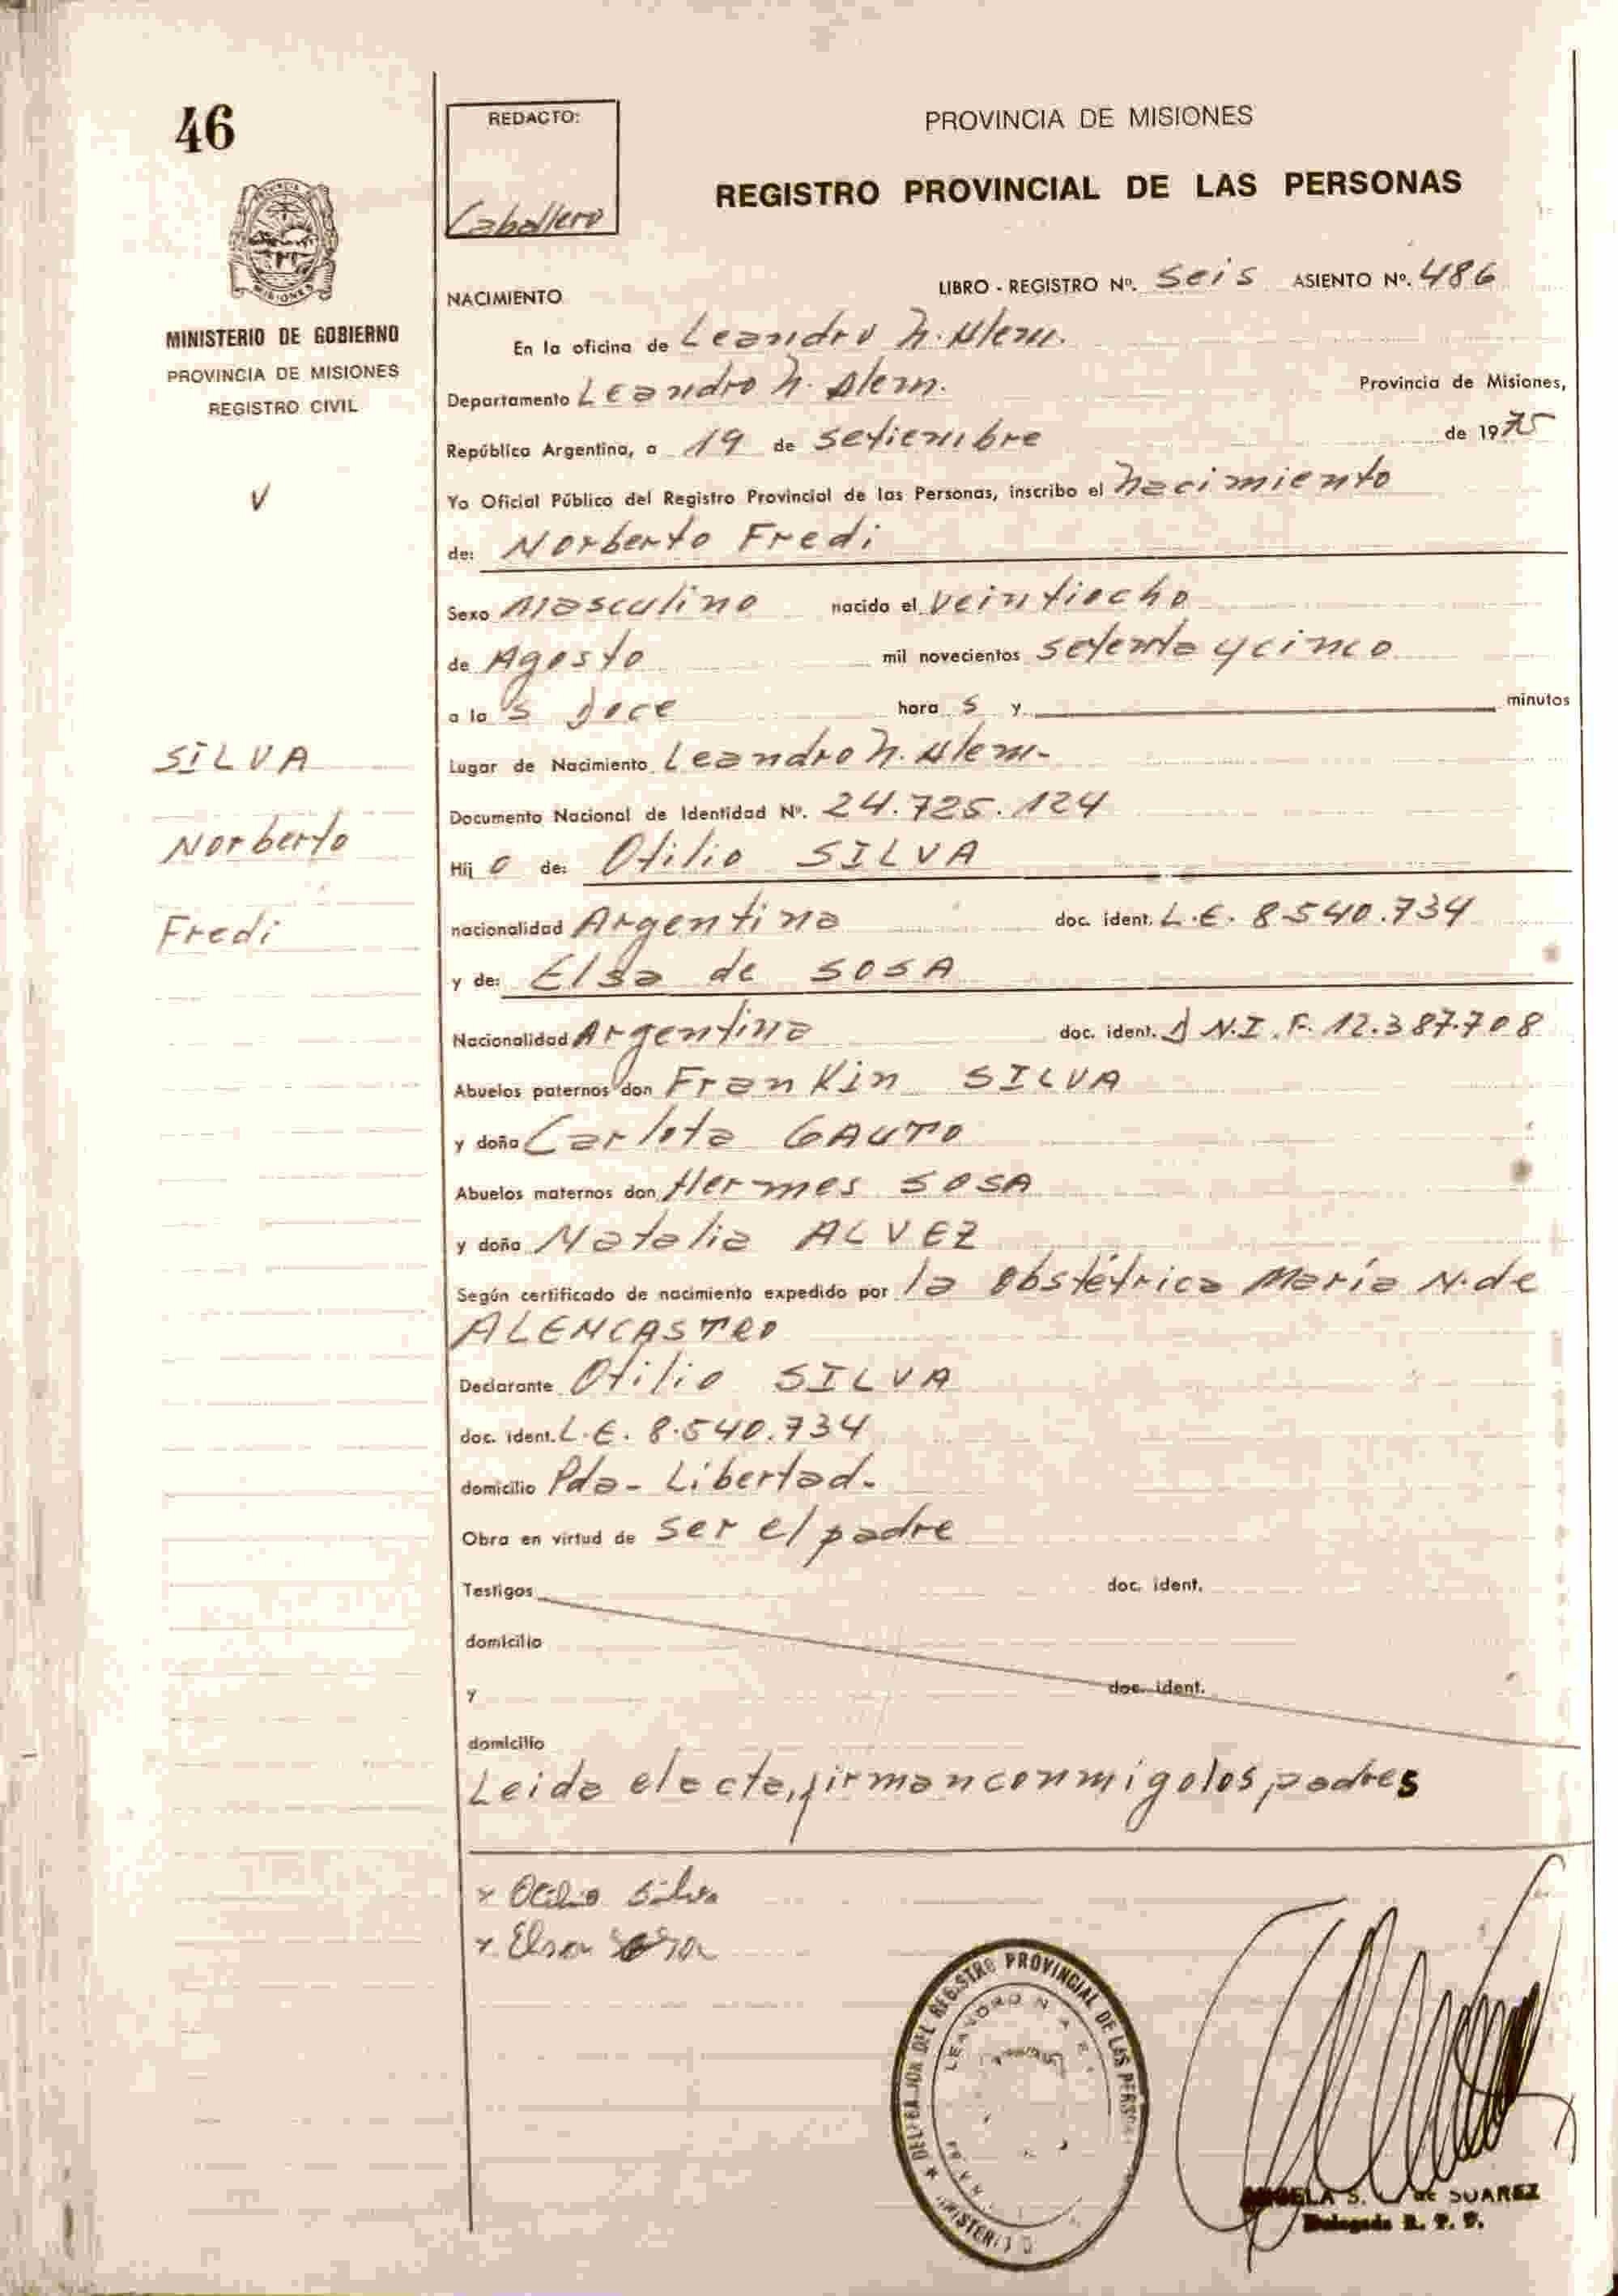 46
REDACTO:
Caballero
PROVINCIA DE MISIONES
REGISTRO PROVINCIAL DE LAS PERSONAS
MISIONES
MINISTERIO DE GOBIERNO
PROVINCIA DE MISIONES
REGISTRO CIVIL
V
SILVA
Norberto
Fredi
NACIMIENTO LIBRO - REGISTRO Nº. Seis ASIENTO Nº. 486
En la oficina de Leandro N. Alem.
Departamento Leandro N. Alem. Provincia de Misiones,
República Argentina, a 19 de setiembre de 1975
Yo Oficial Público del Registro Provincial de las Personas, inscribo el nacimiento
de: Norberto Fredi
Sexo masculino nacido el veintiocho
de Agosto mil novecientos setenta y cinco
a la s doce hora s y minutos
Lugar de Nacimiento Leandro N. Alem-
Documento Nacional de Identidad Nº. 24.725.124
Hij o de: Otilio SILVA
nacionalidad Argentina doc. ident. L.E. 8.540.734
y de: Elsa de SOSA
Nacionalidad Argentina doc. ident. D N.I.F. 12.387.708
Abuelos paternos don Frankin SILVA
y doña Carlota GAUTO
Abuelos maternos don Hermes SOSA
y doña Natalia ALVEZ
Según certificado de nacimiento expedido por la Obstétrica María N. de
ALENCASTRO
Declarante Otilio SILVA
doc. ident. L.E. 8.540.734
domicilio Pda- Libertad.
Obra en virtud de ser el padre
Testigos doc. ident.
domicilio
y doc. ident.
domicilio
Leida el acta, firman conmigo los padres
x Otilio Silva
x Elsa Sosa
DELEGACION DEL REGISTRO PROVINCIAL DE LAS PERSONAS
LEANDRO N. ALEM
MINISTERIO
ANGELA S. de SUAREZ
Delegada R. P. P.